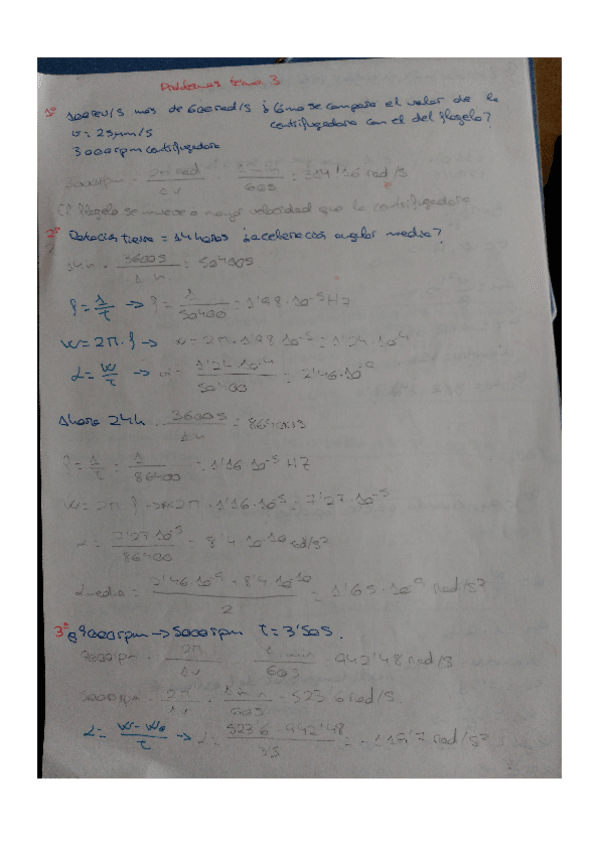 Problemas tema 3
1º 100 rev/s más de 600 rad/s ¿Cómo se compara el valor de la
v = 25 µm/s centrifugadora con el del flagelo?
3000 rpm centrifugadora
3000 rpm · 2π rad / 1 v · 1 min / 60 s = 314'16 rad/s
El flagelo se mueve a mayor velocidad que la centrifugadora
2º Rotación tierra = 14 horas ¿aceleración angular media?
14 h · 3600 s / 1 h = 50400 s
f = 1/τ → f = 1 / 50400 = 1'98 · 10⁻⁵ Hz
w = 2π · f → w = 2π · 1'98 · 10⁻⁵ = 1'24 · 10⁻⁴
α = w/τ → α = 1'24 · 10⁻⁴ / 50400 = 2'46 · 10⁻⁹
Ahora 24h · 3600 s / 1 h = 86400 s
f = 1/τ = 1 / 86400 = 1'16 · 10⁻⁵ Hz
w = 2π · f → w = 2π · 1'16 · 10⁻⁵ = 7'27 · 10⁻⁵
α = 7'27 · 10⁻⁵ / 86400 = 8'4 · 10⁻¹⁰ rad/s²
αmedia = 2'46 · 10⁻⁹ + 8'4 · 10⁻¹⁰ / 2 = 1'65 · 10⁻⁹ rad/s²
3º 9000 rpm → 5000 rpm τ = 3'50 s.
9000 rpm · 2π / 1 v · 1 min / 60 s = 942'48 rad/s
5000 rpm · 2π / 1 v · 1 min / 60 s = 523'6 rad/s.
α = w - w₀ / τ → α = 523'6 - 942'48 / 3'5 = -119'7 rad/s²